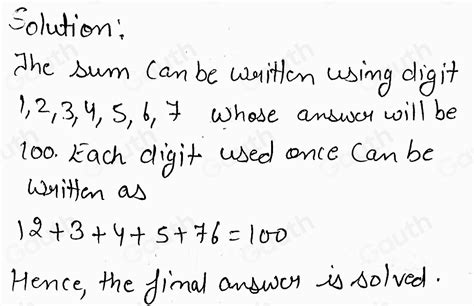 Solution:
The sum can be written using digit
1,2,3,4, 5, 6, 7 whose answer will be
100. Each digit used once can be
written as
12+3+4+5+76=100
Hence, the final answer is solved.
Gauth